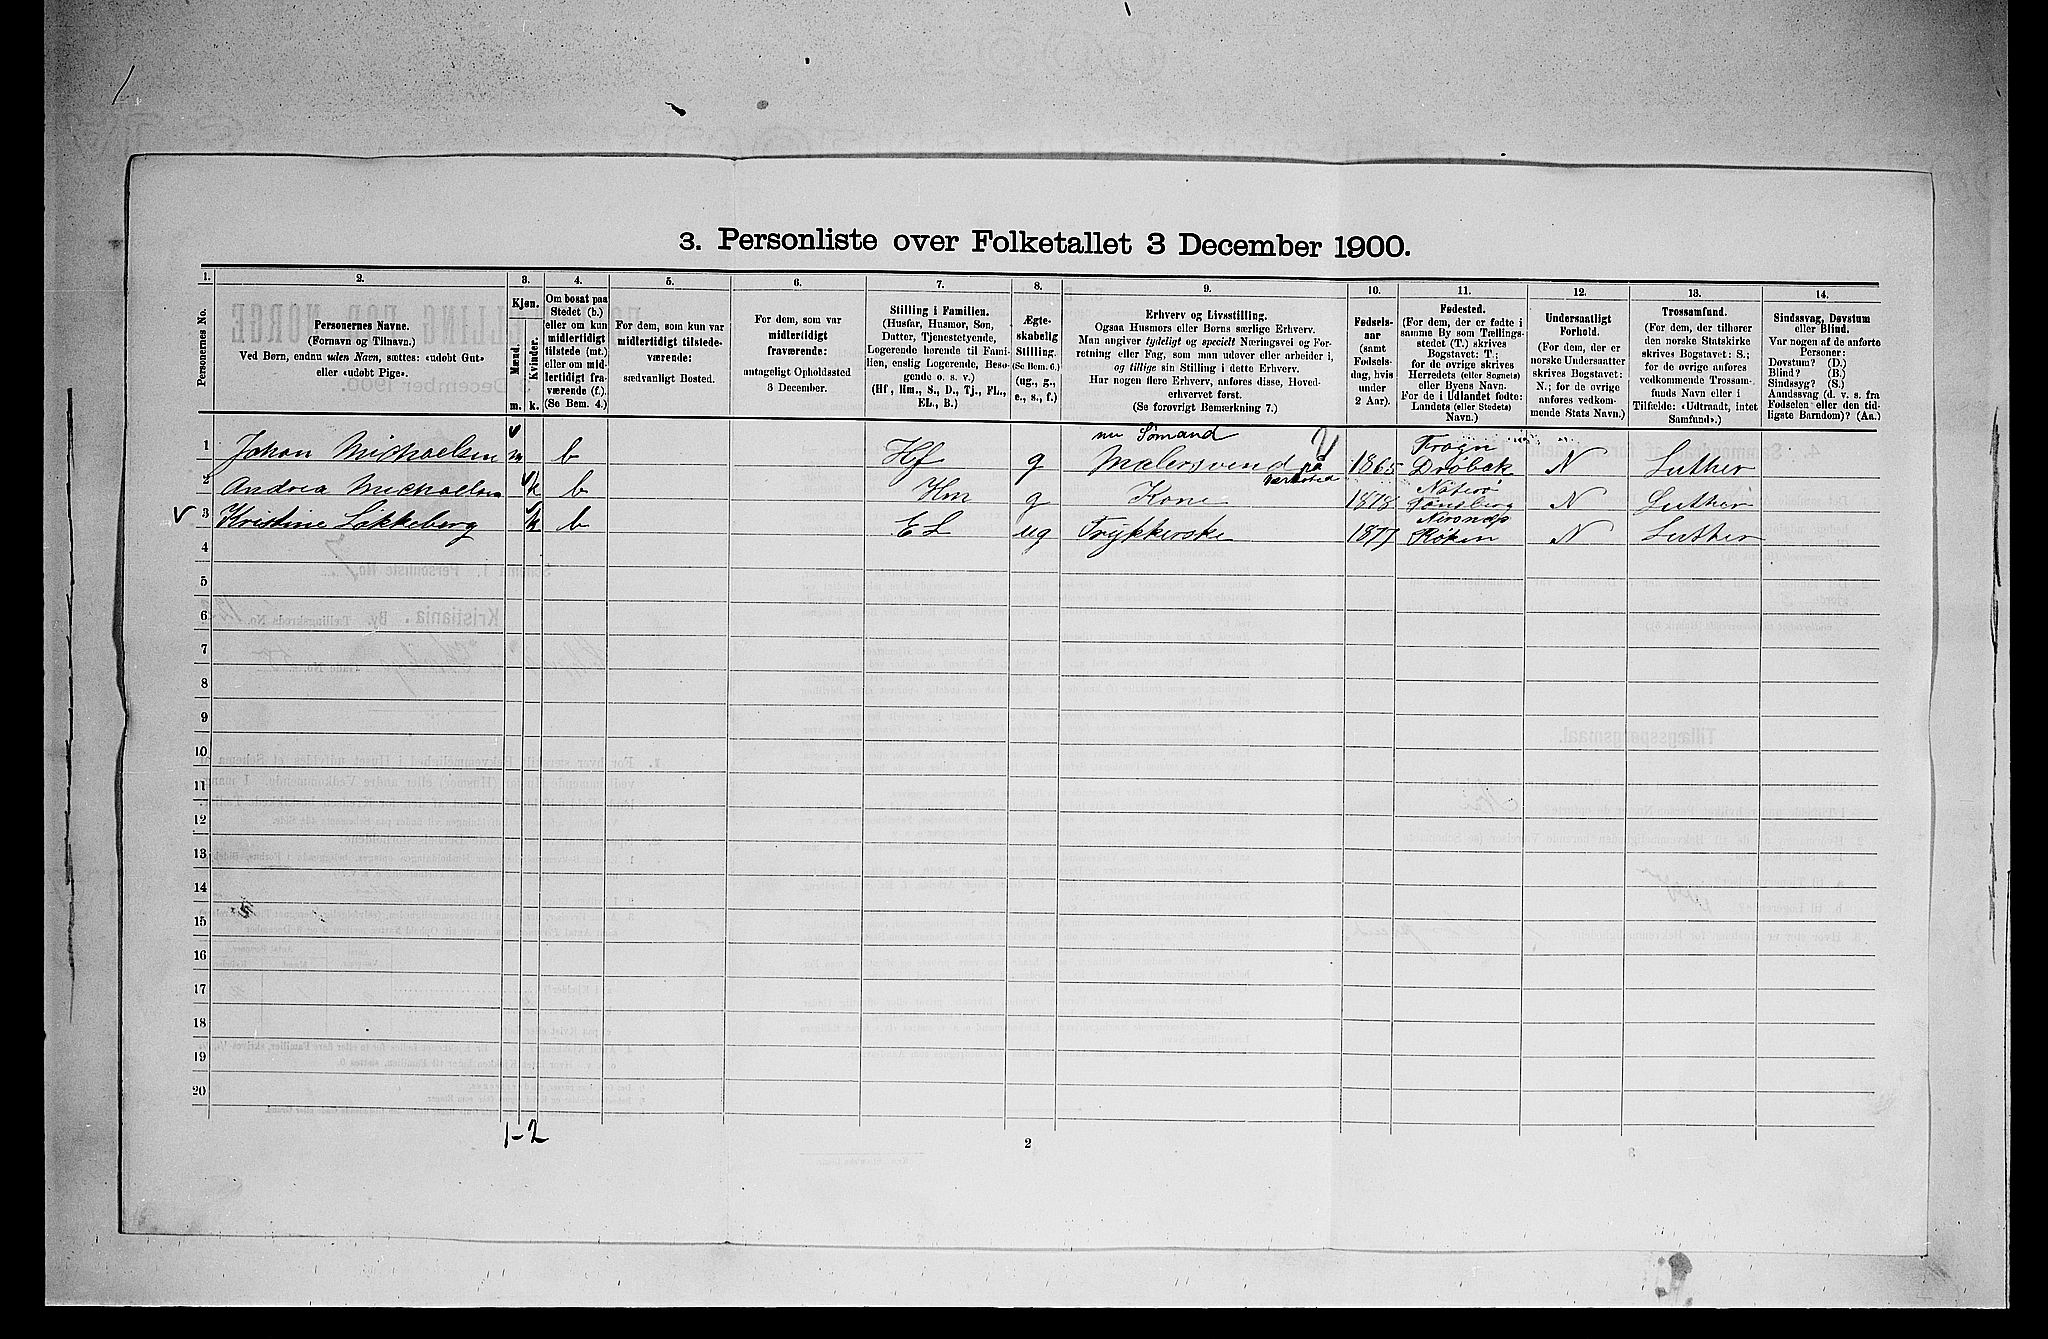 3. Personliste over Folketallet 3 December 1900.
1. 2. 3. 4. 5. 6. 7. 8. 9. 10. 11. 12. 13. 14.
Personernes No.
Personernes Navne.
(Fornavn og Tilnavn.)
Ved Børn, endnu uden Navn, sættes: «udøbt Gut»
eller «udøbt Pige».
Kjøn.
Mænd.
Kvinder.
m. k.
Om bosat paa
Stedet (b.)
eller om kun
midlertidigt
tilstede (mt.)
eller om mid-
lertidigt fra-
værende (f.).
(Se Bem. 4.)
For dem, som kun var
midlertidigt tilstede-
værende:
sædvanligt Bosted.
For dem, som var
midlertidigt
fraværende:
antageligt Opholdssted
3 December.
Stilling i Familien.
(Husfar, Husmor, Søn,
Datter, Tjenestetyende,
Logerende hørende til Fami-
lien, enslig Logerende, Besø-
gende o. s. v.)
(Hf, Hm., S., D., Tj., FL.,
EL., B.)
Ægte-
skabelig
Stilling.
(Se Bem. 6.)
(ug., g.,
e., s., f.)
Erhverv og Livsstilling.
Ogsaa Husmors eller Børns særlige Erhverv.
Man angiver tydeligt og specielt Næringsvei og For-
retning eller Fag, som man udøver eller arbeider i,
og tillige sin Stilling i dette Erhverv.
Har nogen flere Erhverv, anføres disse, Hoved-
erhvervet først.
(Se forøvrigt Bemærkning 7.)
Fødsels-
aar
(samt
Fødsels-
dag, hvis
under
2 Aar).
Fødested.
(For dem, der er fødte i
samme By som Tællings-
stedet (T.) skrives
Bogstavet: T.;
for de øvrige skrives
Herredets (eller Sognets)
eller Byens Navn.
For de i Udlandet fødte:
Landets (eller Stedets)
Navn.)
Undersaatligt
Forhold.
(For dem, der er
norske Undersaatter
skrives Bogstavet:
N.; for de øvrige
anføres vedkom-
mende Stats Navn.)
Trossamfund.
(For dem, der tilhører
den norske Statskirke
skrives Bogstavet: S.;
for de øvrige anføres
vedkommende Trossam-
funds Navn eller i
Tilfælde: «Udtraadt, intet
Samfund».)
Sindssvag, Døvstum
eller Blind.
Var nogen af de anførte
Personer:
Døvstum? (D.)
Blind? (B.)
Sindssyg? (S.)
Aandssvag (d. v. s. fra
Fødselen eller den tid-
ligste Barndom)? (Aa.)
nu Sømand Frogn
1 Johan Michaelsen m b Hf g Malersvend på 1865 Drøbak N Luther
Nøterø
2 Andrea Michaelsen k b Hm g Kone 1878 Tønsberg N Luther
Nersnæs
3 Kristine Løkkeberg k b EL ug Trykkerske 1877 Røken N Luther
4
5
6
7
8
9
10
11
12
13
14
15
16
17
18
19
20
1-2
2